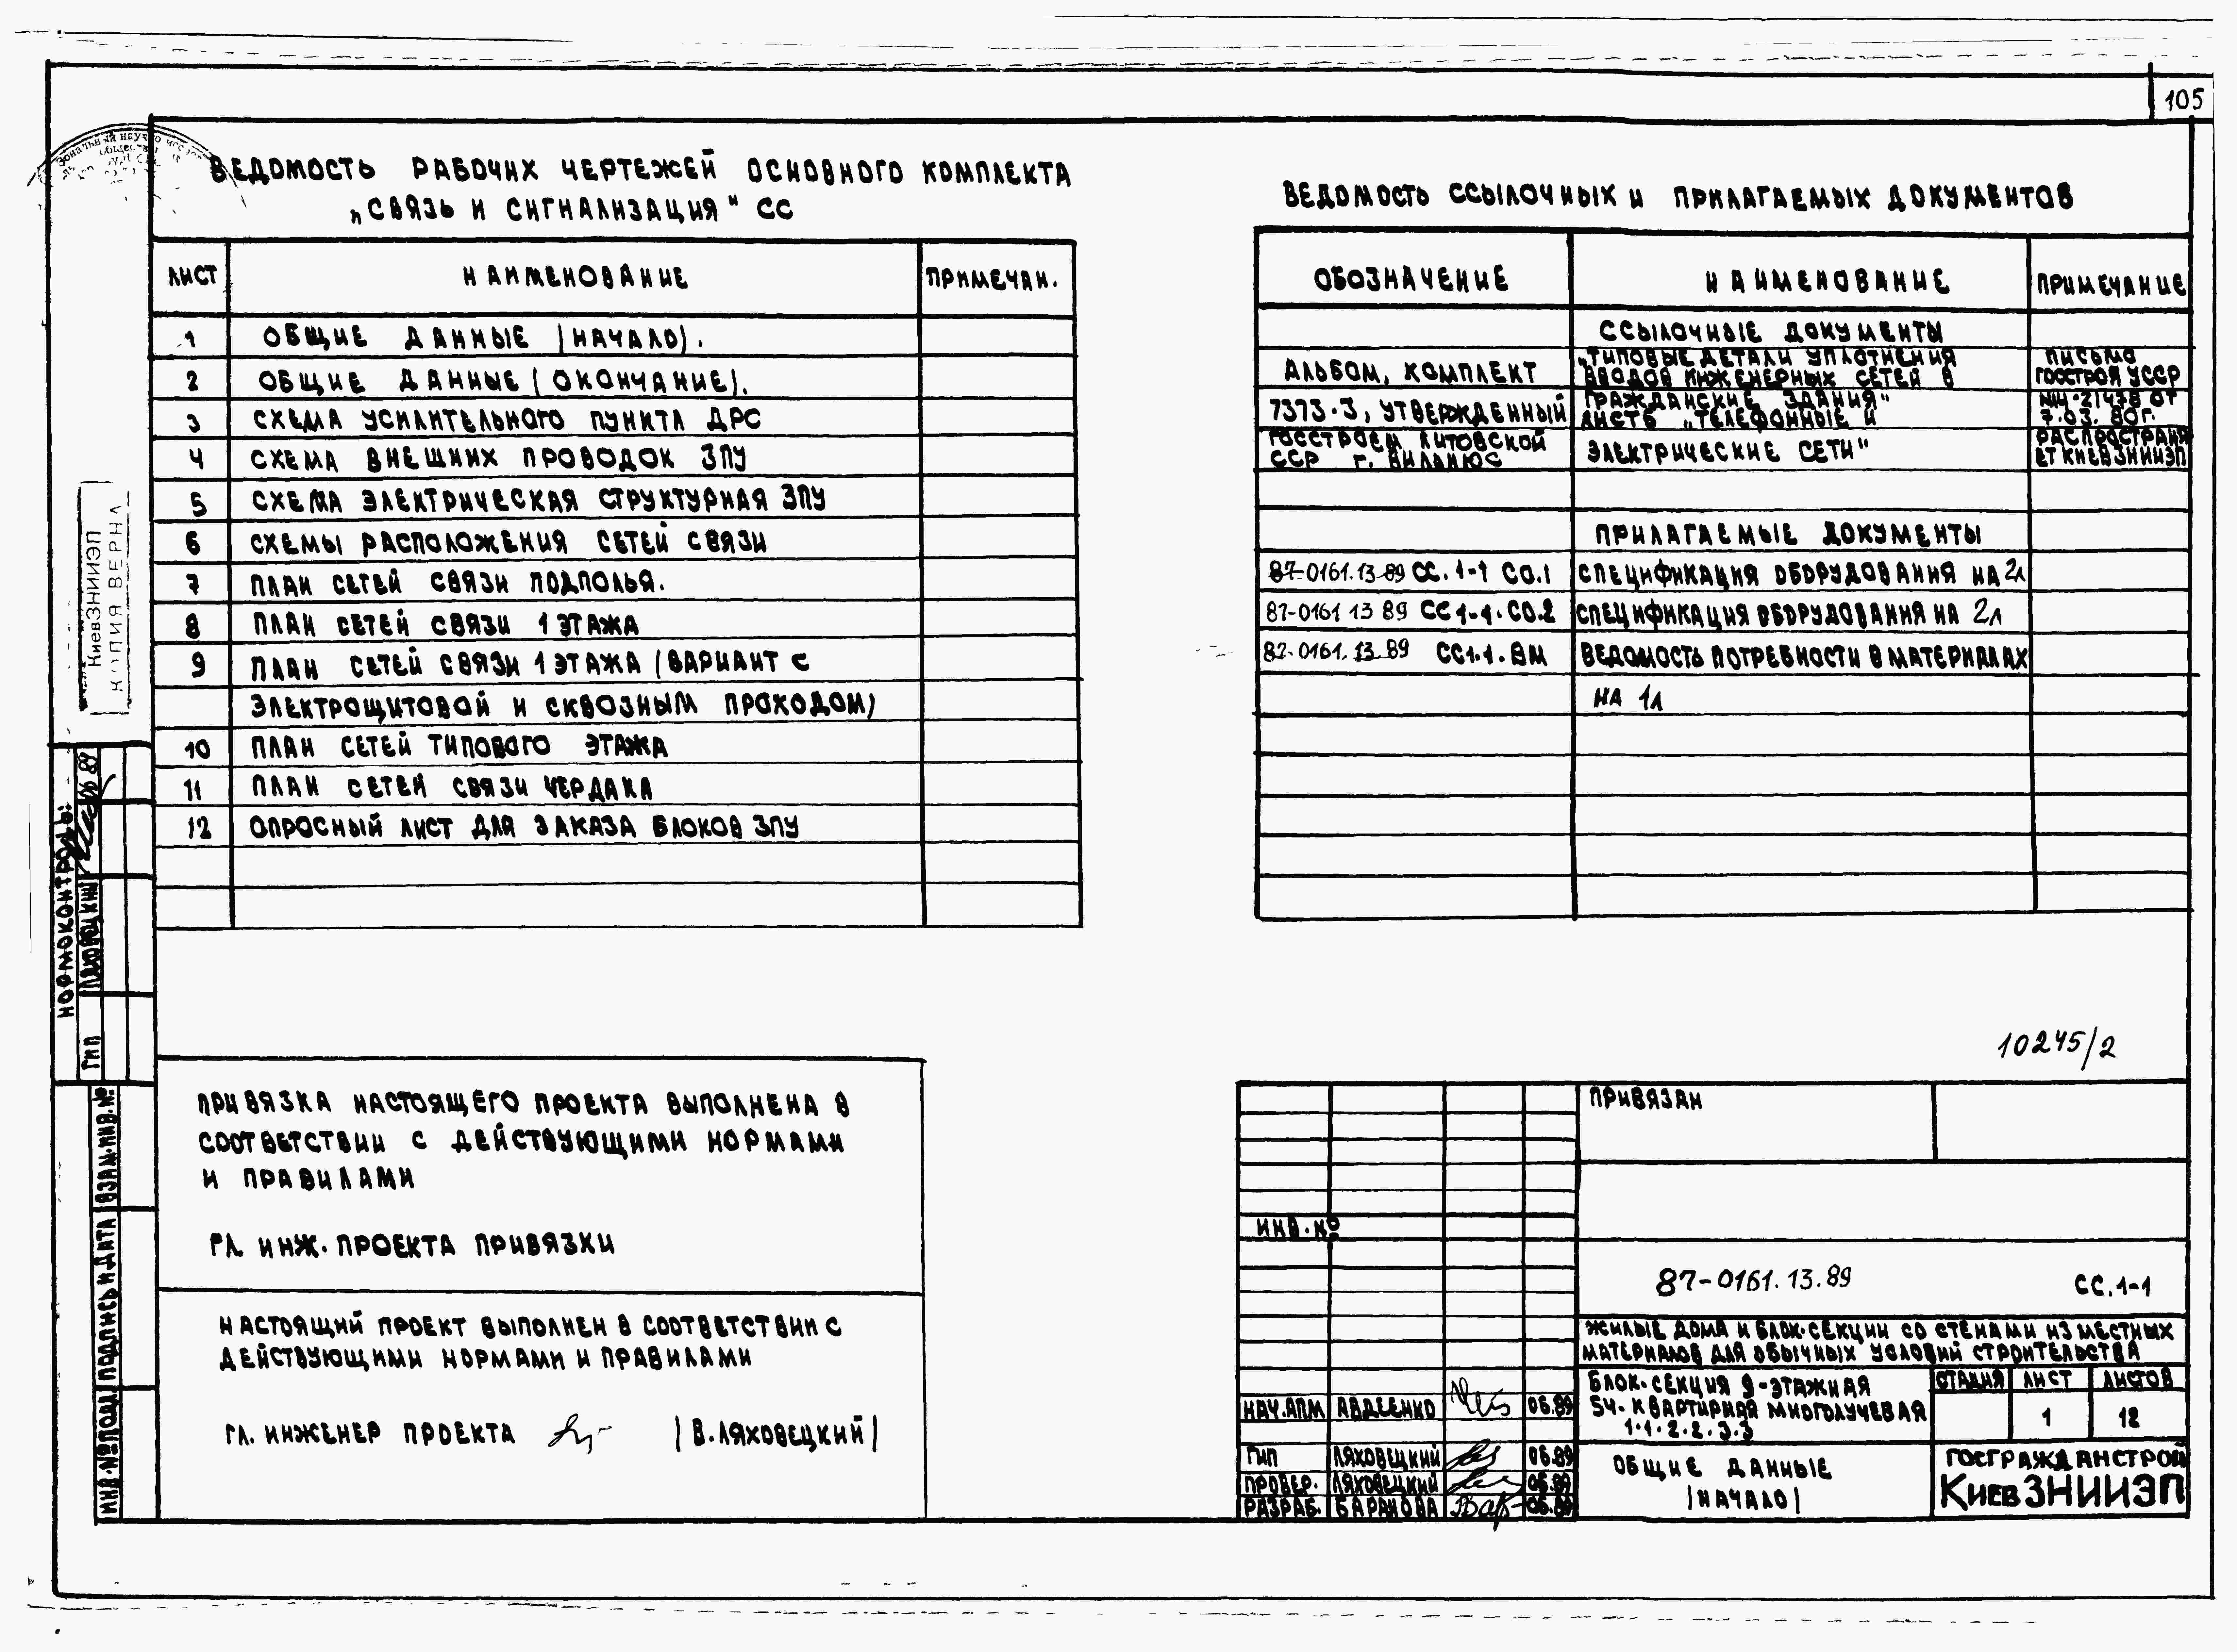 105
ВЕДОМОСТЬ РАБОЧИХ ЧЕРТЕЖЕЙ ОСНОВНОГО КОМПЛЕКТА
„СВЯЗЬ И СИГНАЛИЗАЦИЯ" СС
ЛИСТ НАИМЕНОВАНИЕ ПРИМЕЧАН.
1 ОБЩИЕ ДАННЫЕ (НАЧАЛО).
2 ОБЩИЕ ДАННЫЕ (ОКОНЧАНИЕ).
3 СХЕМА УСИЛИТЕЛЬНОГО ПУНКТА ДРС
4 СХЕМА ВНЕШНИХ ПРОВОДОК ЗПУ
5 СХЕМА ЭЛЕКТРИЧЕСКАЯ СТРУКТУРНАЯ ЗПУ
6 СХЕМЫ РАСПОЛОЖЕНИЯ СЕТЕЙ СВЯЗИ
7 ПЛАН СЕТЕЙ СВЯЗИ ПОДПОЛЬЯ.
8 ПЛАН СЕТЕЙ СВЯЗИ 1 ЭТАЖА
9 ПЛАН СЕТЕЙ СВЯЗИ 1 ЭТАЖА (ВАРИАНТ С
ЭЛЕКТРОЩИТОВОЙ И СКВОЗНЫМ ПРОХОДОМ)
10 ПЛАН СЕТЕЙ ТИПОВОГО ЭТАЖА
11 ПЛАН СЕТЕЙ СВЯЗИ ЧЕРДАКА
12 ОПРОСНЫЙ ЛИСТ ДЛЯ ЗАКАЗА БЛОКОВ ЗПУ
ВЕДОМОСТЬ ССЫЛОЧНЫХ И ПРИЛАГАЕМЫХ ДОКУМЕНТОВ
ОБОЗНАЧЕНИЕ НАИМЕНОВАНИЕ ПРИМЕЧАНИЕ
ССЫЛОЧНЫЕ ДОКУМЕНТЫ
АЛЬБОМ, КОМПЛЕКТ
7373.3, УТВЕРЖДЕННЫЙ
ГОССТРОЕМ ЛИТОВСКОЙ
ССР Г. ВИЛЬНЮС
„ТИПОВЫЕ ДЕТАЛИ УПЛОТНЕНИЯ
ВВОДОВ ИНЖЕНЕРНЫХ СЕТЕЙ В
ГРАЖДАНСКИЕ ЗДАНИЯ"
ЛИСТЬ „ТЕЛЕФОННЫЕ И
ЭЛЕКТРИЧЕСКИЕ СЕТИ"
ПИСЬМО
ГОССТРОЯ УССР
ОТ
7.03.80г.
РАСПРОСТРАНЯ
ЕТ КИЕВЗНИИЭП
ПРИЛАГАЕМЫЕ ДОКУМЕНТЫ
87-0161.13.89 СС.1-1 СО.1 СПЕЦИФИКАЦИЯ ОБОРУДОВАНИЯ НА 2л
87-0161 13 89 СС 1-1. СО.2 СПЕЦИФИКАЦИЯ ОБОРУДОВАНИЯ НА 2л
87-0161.13.89 СС1.1. ВМ ВЕДОМОСТЬ ПОТРЕБНОСТИ В МАТЕРИАЛАХ
НА 1л
КиевЗНИИЭП
КОПИЯ ВЕРНА
НОРМОКОНТРОЛЬ:
ГИП ЛЯХОВЕЦКИЙ 06 89
ИНВ.№ПОДЛ. ПОДПИСЬ И ДАТА ВЗАМ.ИНВ.№
ПРИВЯЗКА НАСТОЯЩЕГО ПРОЕКТА ВЫПОЛНЕНА В
СООТВЕТСТВИИ С ДЕЙСТВУЮЩИМИ НОРМАМИ
И ПРАВИЛАМИ
ГЛ. ИНЖ. ПРОЕКТА ПРИВЯЗКИ
НАСТОЯЩИЙ ПРОЕКТ ВЫПОЛНЕН В СООТВЕТСТВИИ С
ДЕЙСТВУЮЩИМИ НОРМАМИ И ПРАВИЛАМИ
ГЛ. ИНЖЕНЕР ПРОЕКТА (В.ЛЯХОВЕЦКИЙ)
10245/2
ПРИВЯЗАН
ИНВ.№
87-0161.13.89 СС.1-1
ЖИЛЫЕ ДОМА И БЛОК-СЕКЦИИ СО СТЕНАМИ ИЗ МЕСТНЫХ
МАТЕРИАЛОВ ДЛЯ ОБЫЧНЫХ УСЛОВИЙ СТРОИТЕЛЬСТВА
БЛОК-СЕКЦИЯ 9-ЭТАЖНАЯ
54-КВАРТИРНАЯ МНОГОЛУЧЕВАЯ
1.1.2.2.3.3
СТАДИЯ ЛИСТ ЛИСТОВ
1 12
НАЧ.АПМ АВДЕЕНКО 06.89
ГИП ЛЯХОВЕЦКИЙ 06.89
ПРОВЕР. ЛЯХОВЕЦКИЙ 06.89
РАЗРАБ. БАРАНОВА 06.89
ОБЩИЕ ДАННЫЕ
(НАЧАЛО)
ГОСГРАЖДАНСТРОЙ
КиевЗНИИЭП